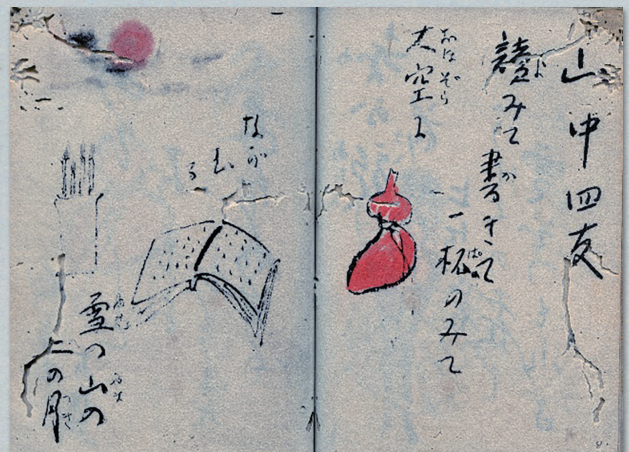 山中四友
讀みて書きて
一杯のみて
大空に
ながむる
雪の山の
上の月